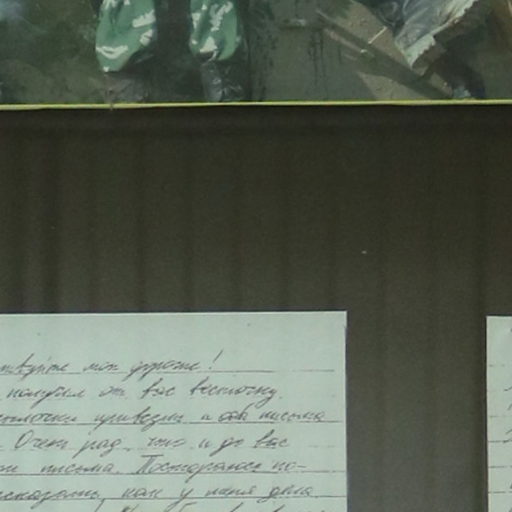 твуйте мои дорогие!
получил от вас весточку.
сылочки привезли и оба письма
Очень рад, что и до вас
письма. Постараюсь по-
сказать, как у меня дела